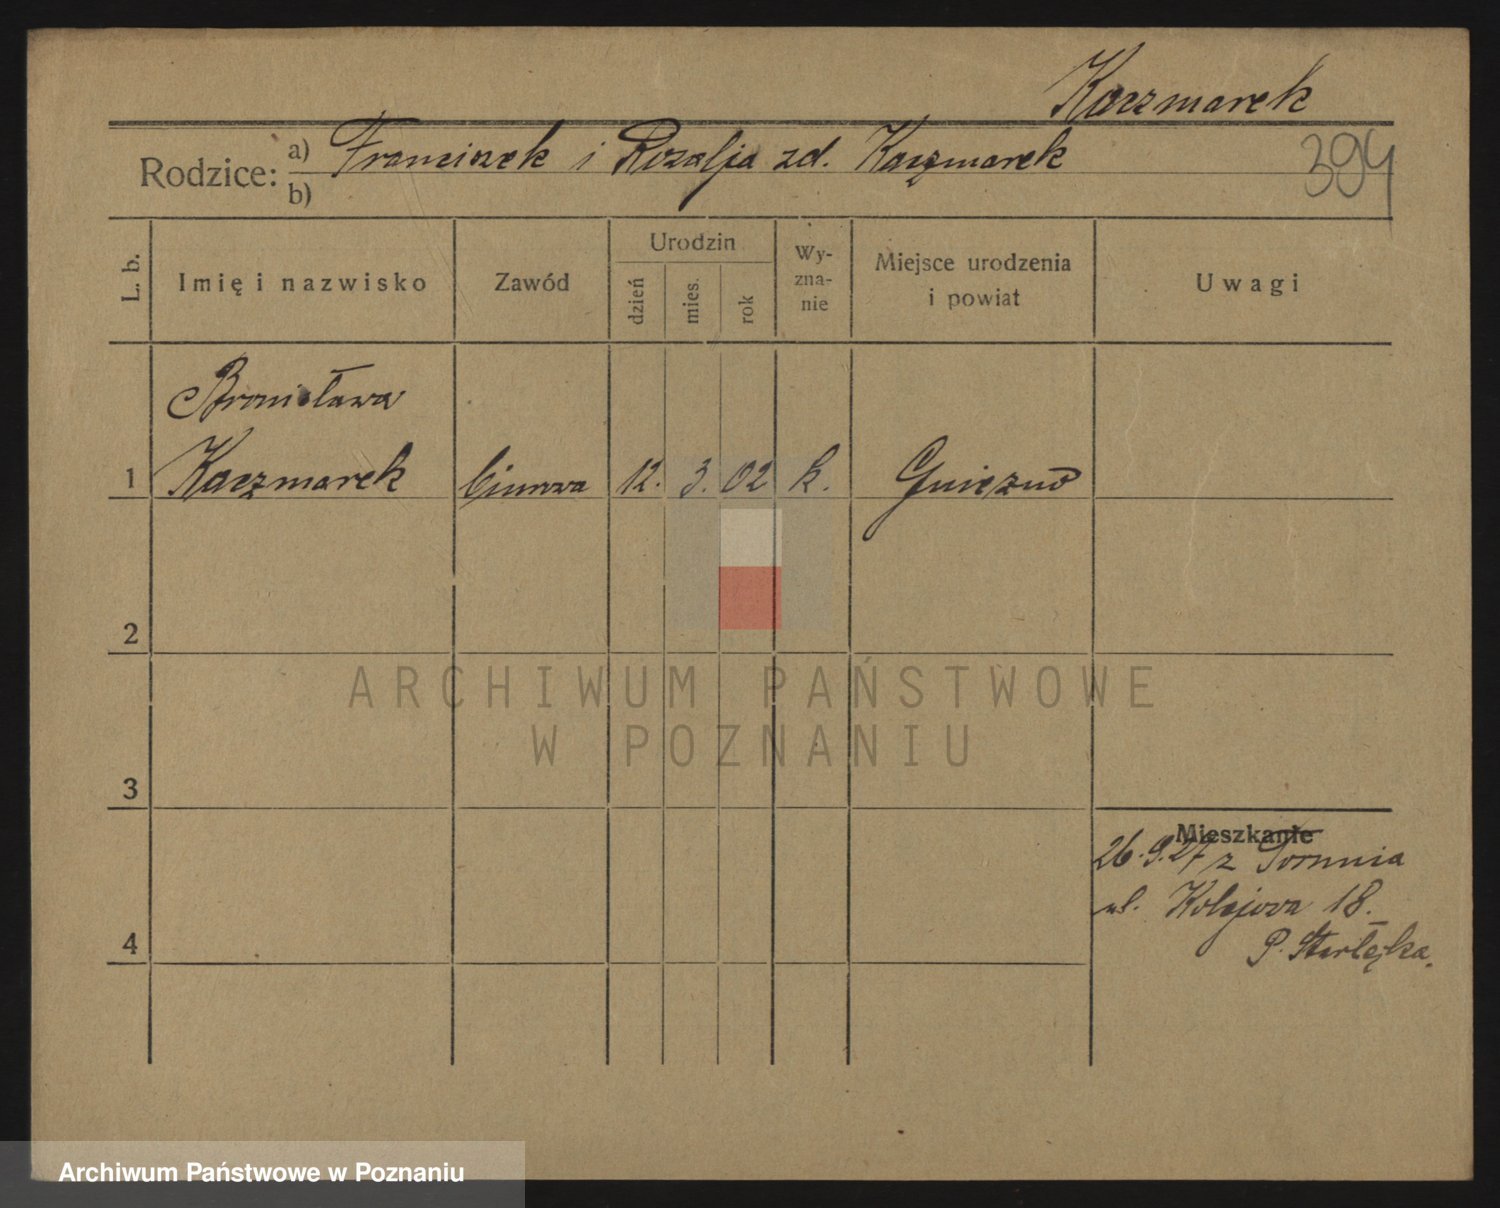 Kaczmarek
394
Rodzice: a) Franciszek i Rozalja zd. Kaczmarek
b)
L. b.
Imię i nazwisko
Zawód
Urodzin
dzień
mies.
rok
Wy-
zna-
nie
Miejsce urodzenia
i powiat
Uwagi
Bronisława
1 Kaczmarek 12. 3. 02 k. Gniezno
2
ARCHIWUM PAŃSTWOWE
W POZNANIU
3
Mieszkanie
26.9.27 z Torunia
ul. Kolejowa 18.
4
P. Starłęka.
Archiwum Państwowe w Poznaniu